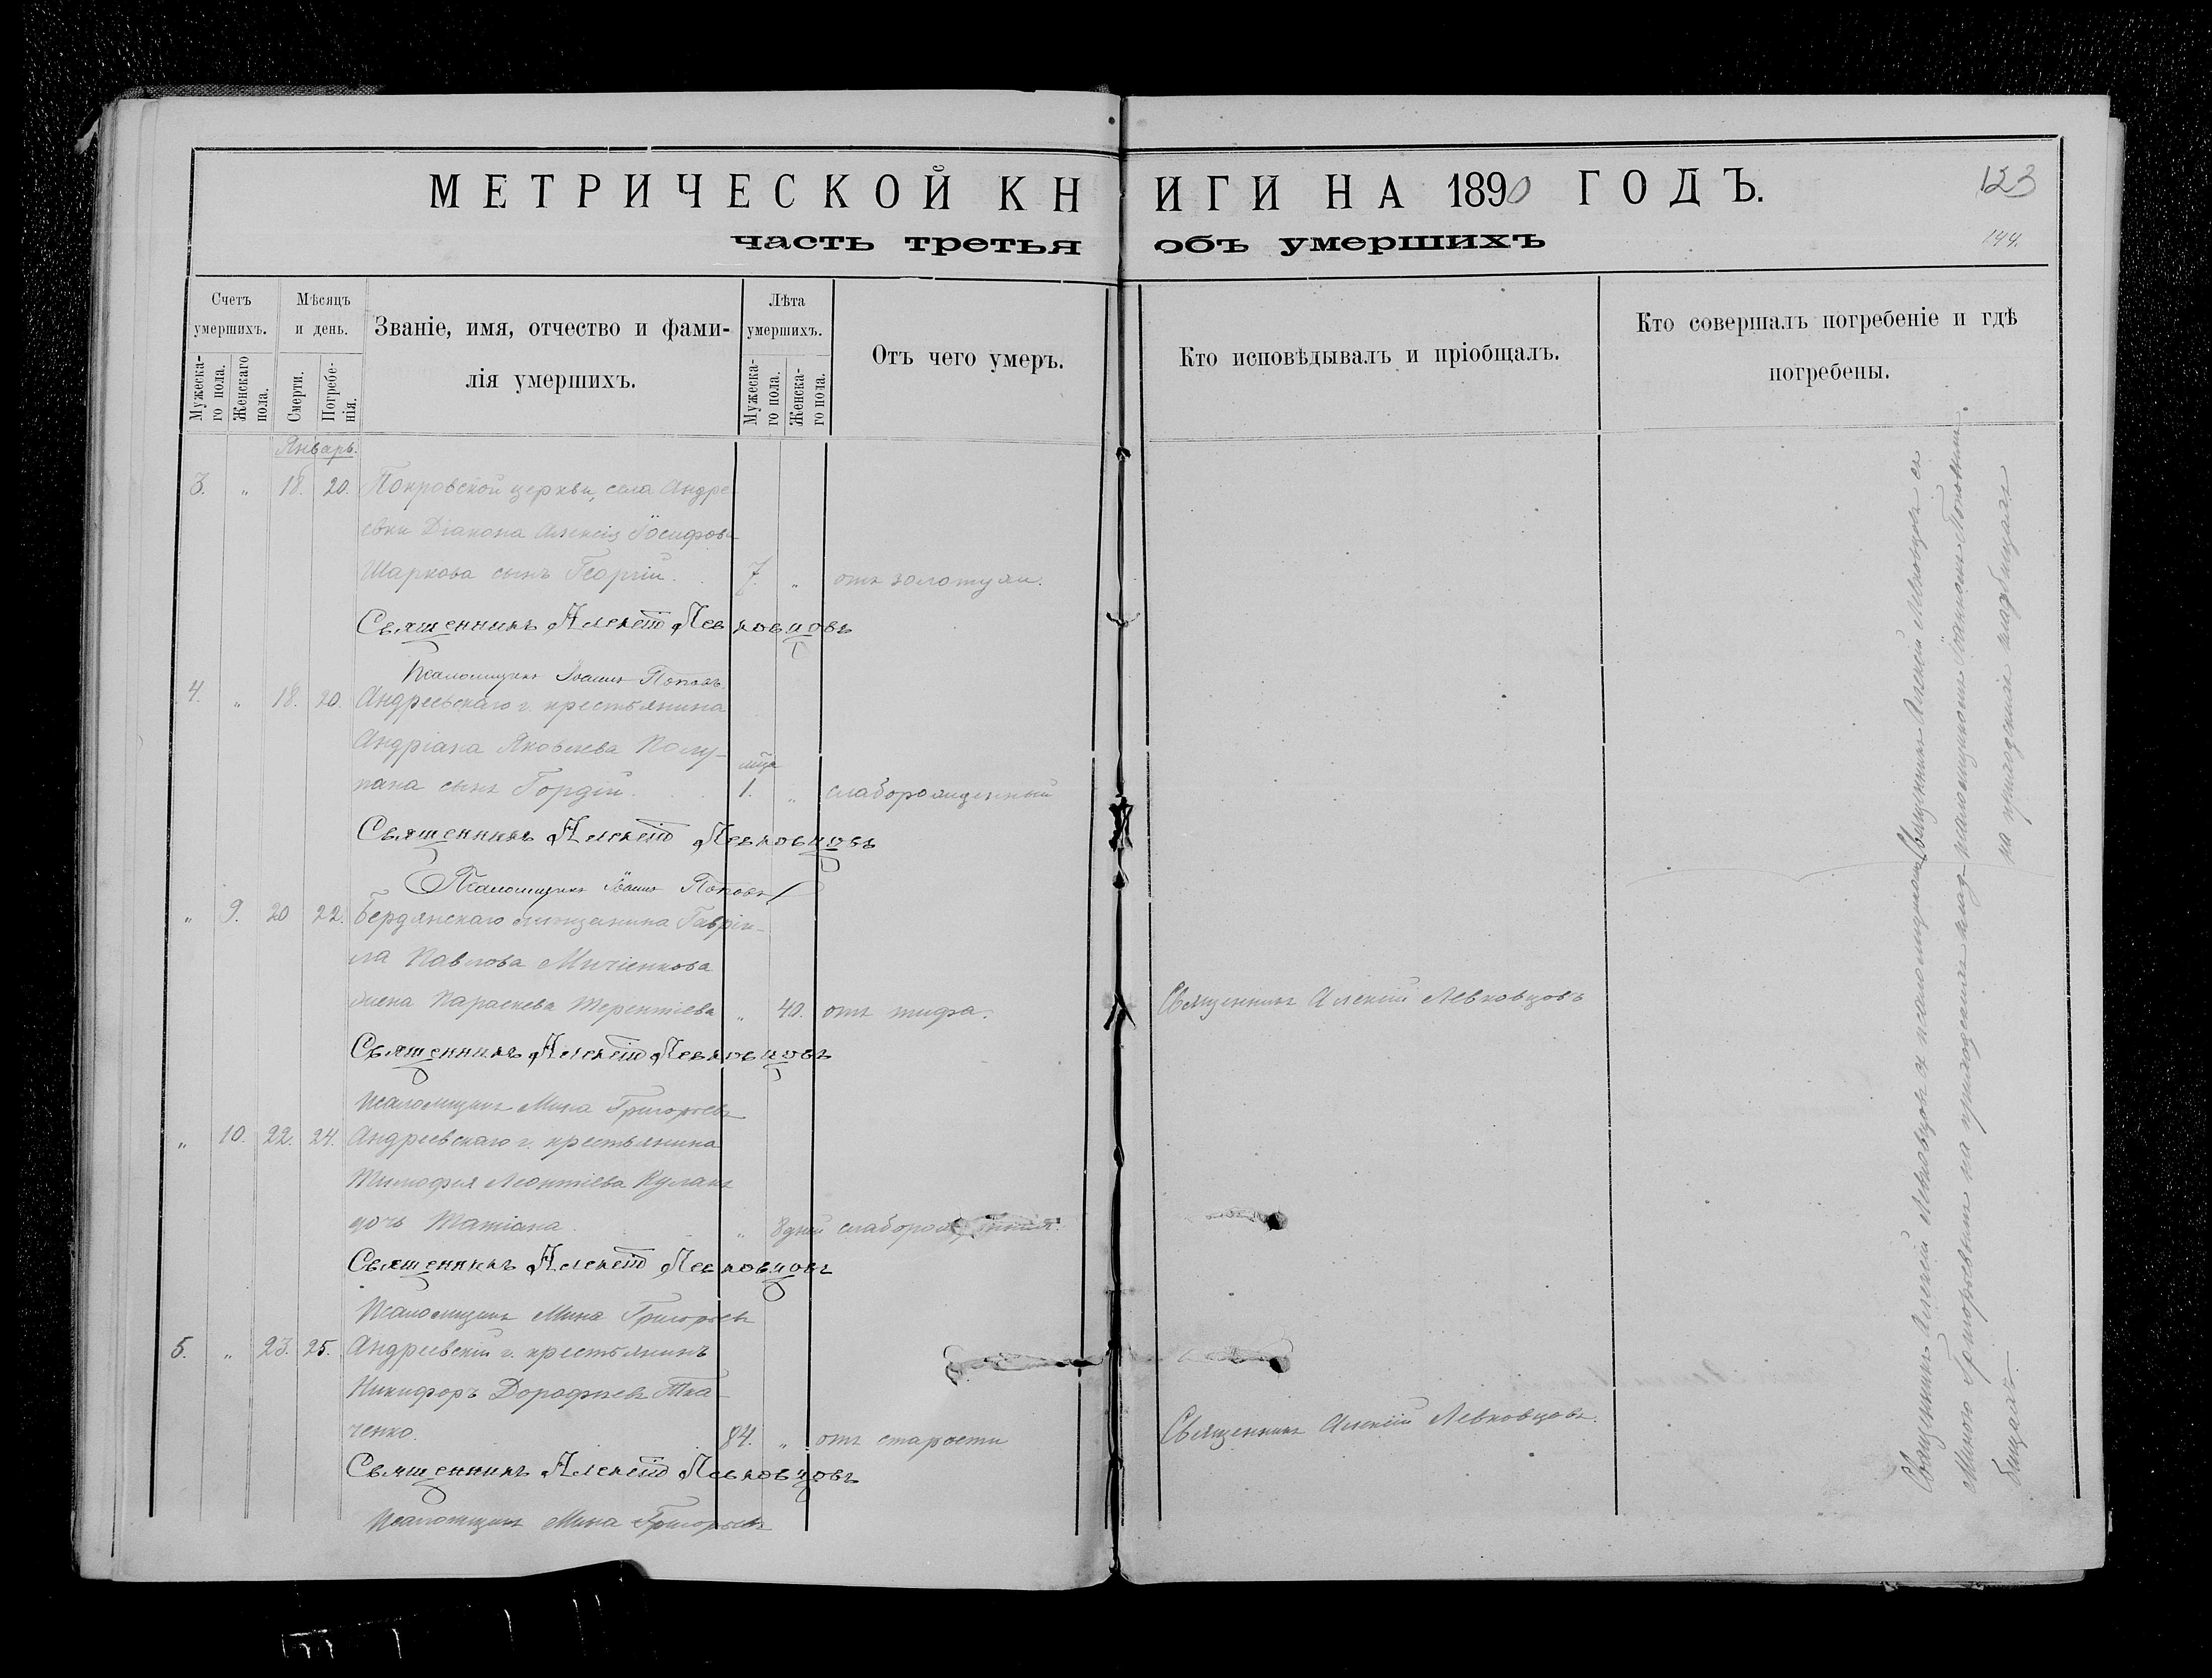 МЕТРИЧЕСКОЙ КНИГИ НА 1890 ГОДЪ.
123
144.
часть третья объ умершихъ
Счетъ умершихъ.
Мужеска-го пола.
Женскаго пола.
Мѣсяцъ и день.
Смерти.
Погребе-нія.
Званіе, имя, отчество и фами-
лія умершихъ.
Лѣта умершихъ.
Мужеска-го пола.
Женска-го пола.
Отъ чего умеръ.
Кто исповѣдывалъ и пріобщалъ.
Кто совершалъ погребеніе и гдѣ
погребены.
Январь.
3. „ 18. 20. Покровской церкви, села Андре-
евки Діакона Алексія Іосифова
Шаркова сынъ Георгій. 7. „ отъ золотухи.
Священникъ Алексій Левковцовъ
Псаломщикъ Іоаннъ Поповъ
4. „ 18. 20. Андреевскаго г. крестьянина
Андріана Яковлева Полу-
мѣца
пана сынъ Гордій. 1. „ слаборожденный
Священникъ Алексій Левковцовъ
Псаломщикъ Іоаннъ Поповъ
„ 9. 20 22. Бердянскаго мѣщанина Гавріи-
ла Павлова Мичіенкова
жена Параскева Терентіева „ 40. отъ тифа. Священникъ Алексій Левковцовъ
Священникъ Алексій Левковцовъ
Псаломщикъ Мина Григорьевъ
„ 10. 22. 24. Андреевскаго г. крестьянина
Тимофея Леонтіева Кулакъ
дочь Татіана. „ 8 дней
Священникъ Алексій Левковцовъ
Псаломщикъ Мина Григорьевъ
5. „ 23. 25. Андреевскій г. крестьянинъ
Никифоръ Дорофѣевъ Тка-
ченко. 84. „ отъ старости Священникъ Алексій Левковцовъ.
Священникъ Алексій Левковцовъ
Псаломщикъ Мина Григорьевъ
Священникъ Алексій Левковцовъ съ
псаломщикомъ Іоанномъ Поповымъ
на приходскомъ кладбищѣ
Священникъ Алексій Левковцовъ съ псаломщикомъ
Миною Григорьевымъ на приходскомъ клад-
бищѣ.